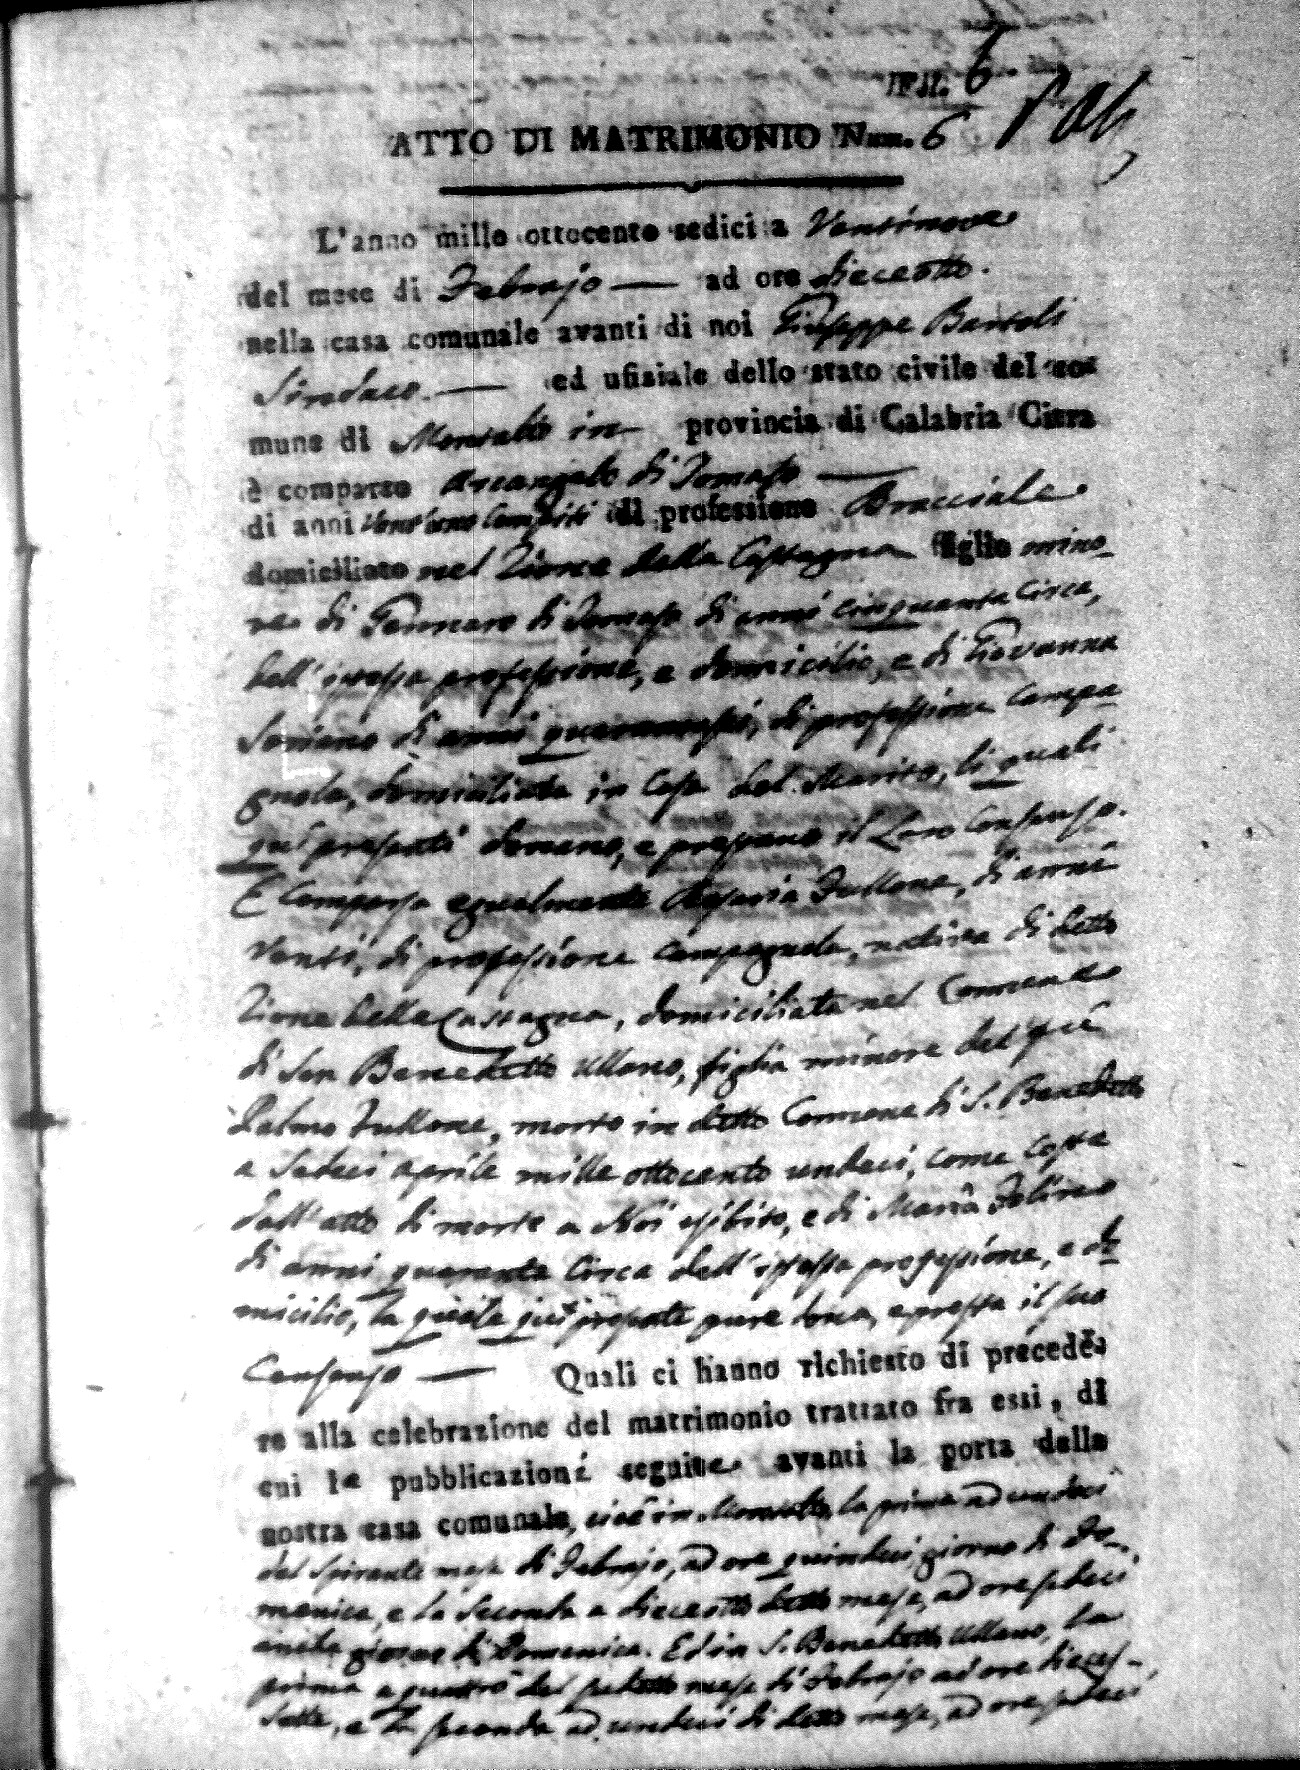 Fol. 6
ATTO DI MATRIMONIO Num. 6
L'anno mille ottocento sedici a Ventinove
del mese di Febrajo — ad ore dieceotto.
nella casa comunale avanti di noi Giuseppe Bartoli
Sindaco. — ed ufiziale dello stato civile del co-
mune di Montalto in provincia di Calabria Citra
è comparso Arcangelo di Tomaso —
di anni vent'uno compiti di professione Bracciale
domiciliato nel Rione della Castagna figlio mino-
re di Gennaro di Tomaso di anni cinquanta circa,
dell'istessa professione, e domicilio, e di Giovanna
Soriano di anni quarantasei, di professione campa
gnola, domiciliata in casa del Marito, li quali
qui presenti donano, e prestano il Loro Consenso.
E Comparsa egualmente Rosaria Fullone, di anni
venti, di professione campagnola, nativa di detto
Rione della Castagna, domiciliata nel Comune
di San Benedetto Ullano, figlia minore del qu
Palmo Fullone, morto in detto Comune di S. Benedetto
a Sedeci aprile mille ottocento undeci, come costa
dall'atto di morte a Noi esibito, e di Maria
di anni quaranta Circa dell'istessa professione, e do
micilio, la quale qui presente pure dona, e presta il suo
Consenso — Quali ci hanno richiesto di precede
re alla celebrazione del matrimonio trattato fra essi, di
cui le pubblicazioni seguite avanti la porta della
nostra casa comunale, cioè in Montalto, la prima ad undeci
del spirante mese di Febrajo, ad ore quindeci giorno di Do-
menica, e la Seconda a dieceotto detto mese, ad ore sedeci
anche giorno di Domenica. Ed in S. Benedetto Ullano, la
prima a quattro del sudetto mese di Febrajo ad ore dieces-
sette, e la seconda ad undeci di detto mese, ad ore sedeci